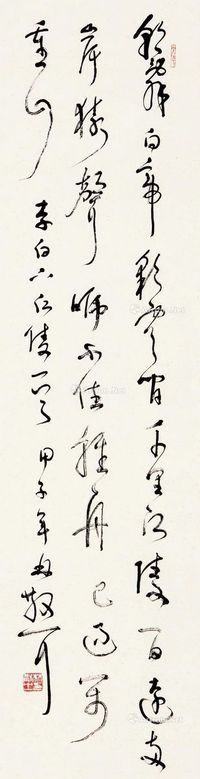 朝辞白帝彩云间千里江陵一日还两
岸猿声啼不住轻舟已过万
重山
李白下江陵一首 甲子年 散耳